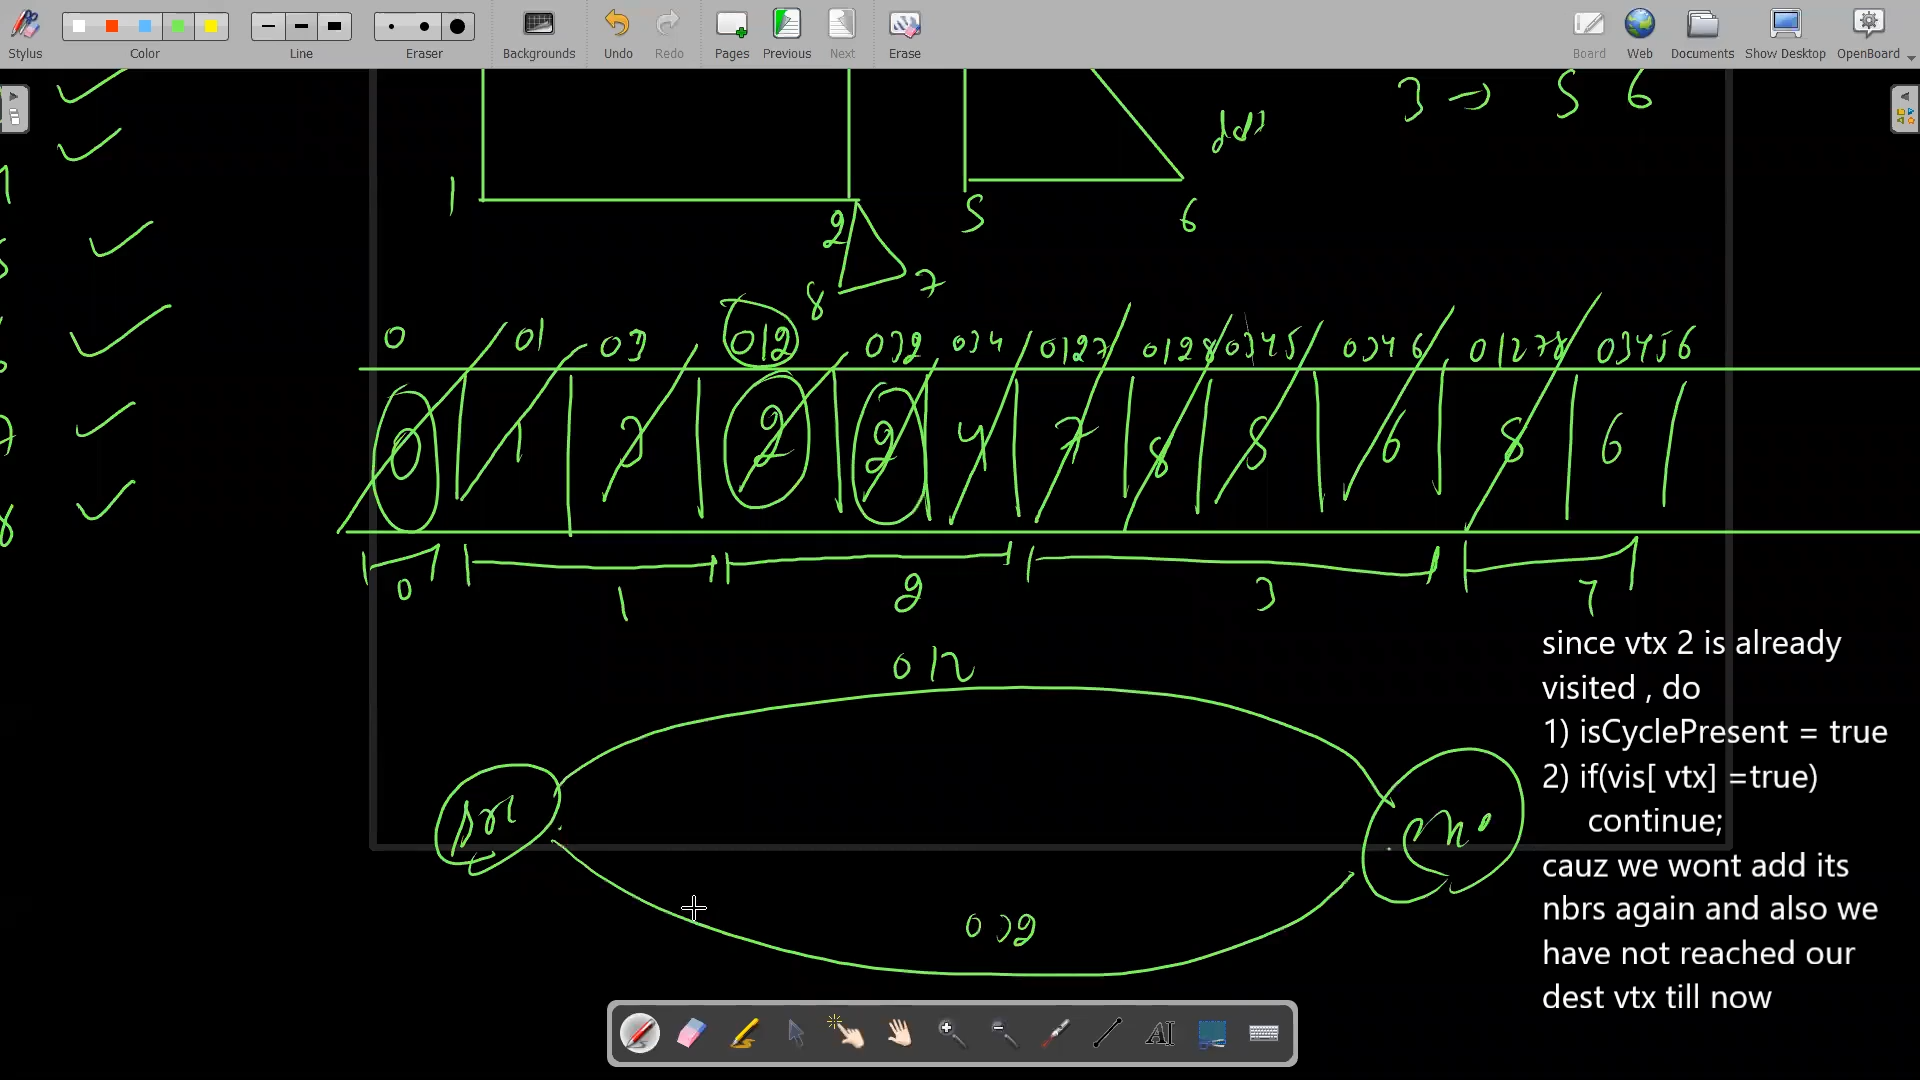 Stylus
Color
Line
Eraser
Backgrounds
Undo
Redo
Pages
Previous
Next
Erase
Board
Web
Documents
Show Desktop
OpenBoard
3 → 5 6
1
2
5
6
8
7
0 01 03 012 032 034 0127 0128 0345 0346 01278 03456
0 1 3 2 2 4 7 8 5 6 8 6
0 1 2 3 4
012
src
032
since vtx 2 is already
visited , do
1) isCyclePresent = true
2) if(vis[ vtx] =true)
continue;
cauz we wont add its
nbrs again and also we
have not reached our
dest vtx till now
AI